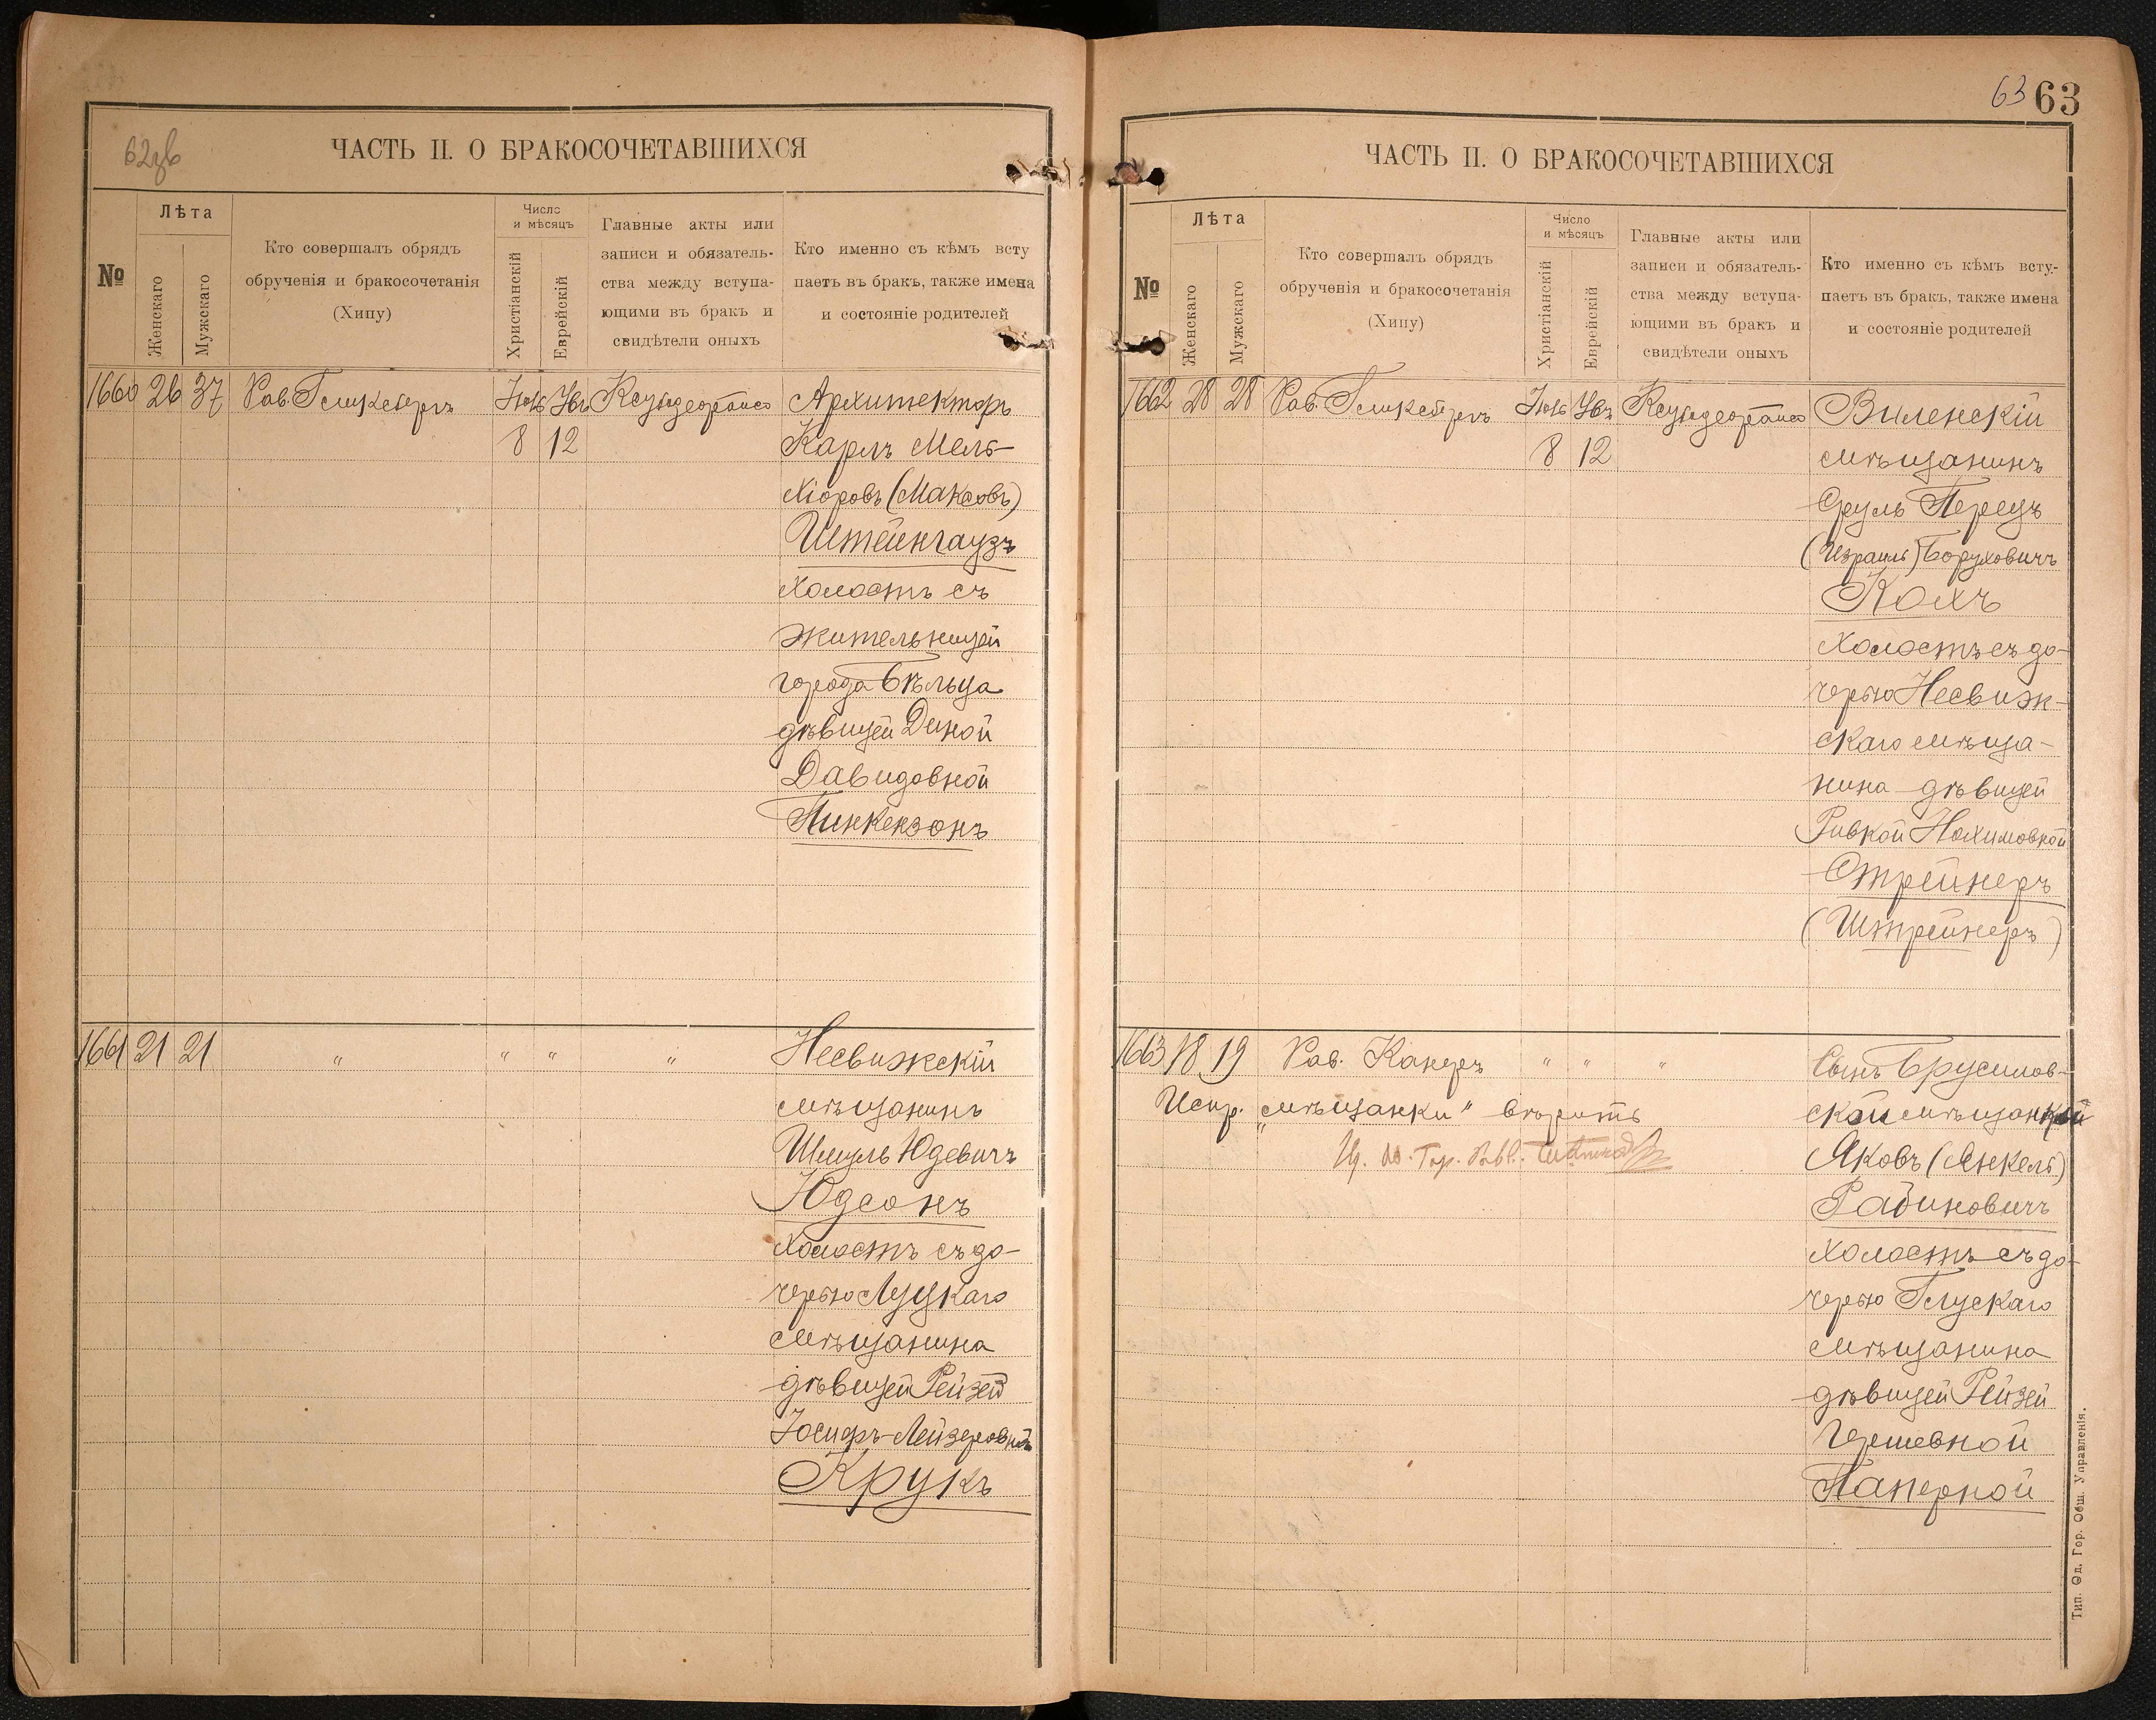 62зв
ЧАСТЬ II. О БРАКОСОЧЕТАВШИХСЯ
№
Лѣта
Женскаго
Мужскаго
Кто совершалъ обрядъ
обрученія и бракосочетанія
(Хипу)
Число
и мѣсяцъ
Христіанскій
Еврейскій
Главные акты или
записи и обязатель-
ства между вступа-
ющими въ бракъ и
свидѣтели оныхъ
Кто именно съ кѣмъ всту
паетъ въ бракъ, также имена
и состояніе родителей
1660 26 37 Рав.
8 12
Архитекторъ
Карлъ Мель-
хіоровъ (Максовъ)
Штейнгаузъ
холостъ съ
жительницей
города Бѣльца
дѣвицей Диной
Давидовной
Пинкензонъ
1661 21 21 " " " "
Несвижскій
мѣщанинъ
Шмуль Юдевичъ
Юдсонъ
холостъ съ до-
черью Луцкаго
мѣщанина
дѣвицей Рейзей
Іосифъ-Лейзеровной
Крукъ
63 63
ЧАСТЬ II. О БРАКОСОЧЕТАВШИХСЯ
№
Лѣта
Женскаго
Мужскаго
Кто совершалъ обрядъ
обрученія и бракосочетанія
(Хипу)
Число
и мѣсяцъ
Христіанскій
Еврейскій
Главные акты или
записи и обязатель-
ства между вступа-
ющими въ бракъ и
свидѣтели оныхъ
Кто именно съ кѣмъ всту-
паетъ въ бракъ, также имена
и состояніе родителей
1662 28 28 Рав.
8 12
Виленскій
мѣщанинъ
Сруль Перецъ
(Израиль) Боруховичъ
Кохъ
холостъ съ до-
черью Несвиж-
скаго мѣща-
нина дѣвицей
Ривкой Нохимовной
Стрейнеръ
(Штрейнеръ)
1663 18 19 Рав. Канеръ " " "
Испр. „мѣщанки" вѣрить
Сынъ Брусилов-
ской мѣщанки
Яковъ (Янкель)
Рабиновичъ
холостъ съ до-
черью Глускаго
мѣщанина
дѣвицей Рейзей
Гершевной
Паперной
Тип. Од. Гор. Общ. Управленія.